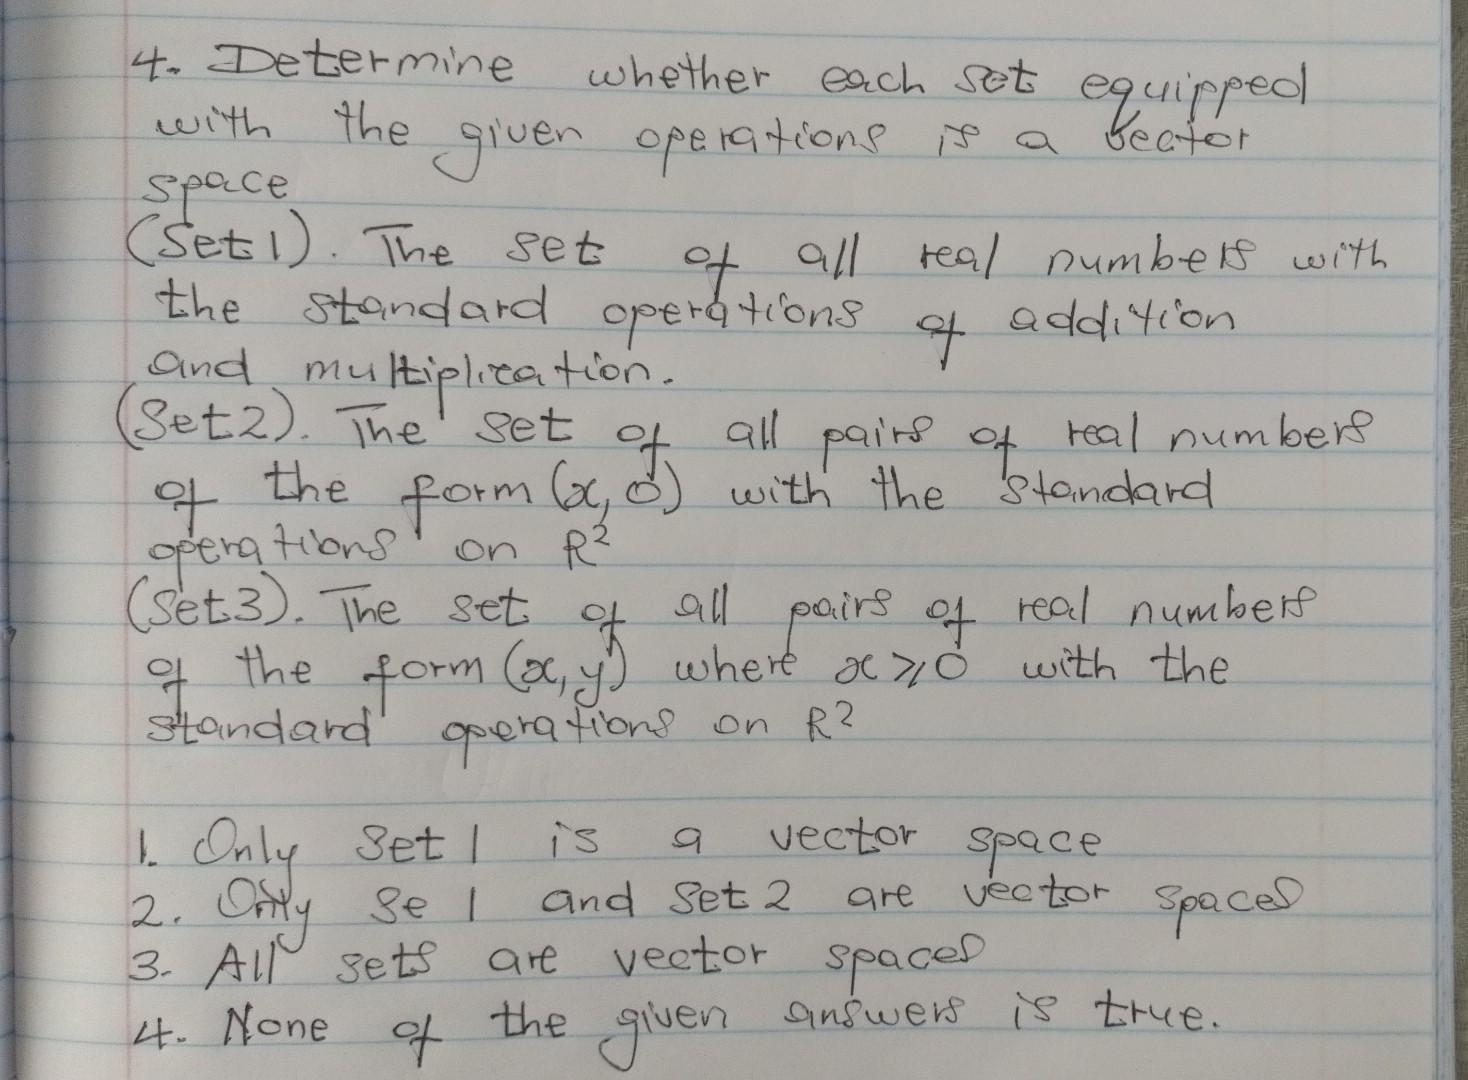 4. Determine whether each set equipped
with the given operations is a vector
space
(Set 1). The set of all real numbers with
the standard operations of addition
and multiplication.
(Set 2). The set of all pairs of real numbers
of the form (x, 0) with the standard
operations on R²
(Set 3). The set of all pairs of real numbers
of the form (x, y) where x ⩾ 0 with the
standard operations on R²
1. Only Set 1 is a vector space
2. Only Se 1 and Set 2 are vector spaces
3. All sets are vector spaces
4. None of the given answers is true.